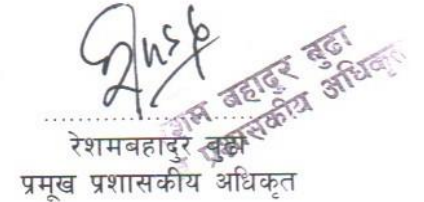 रेशम बहादुर बुढा
प्रशासकीय अधिकृत
....................................
रेशमबहादुर बुढा
प्रमूख प्रशासकीय अधिकृत